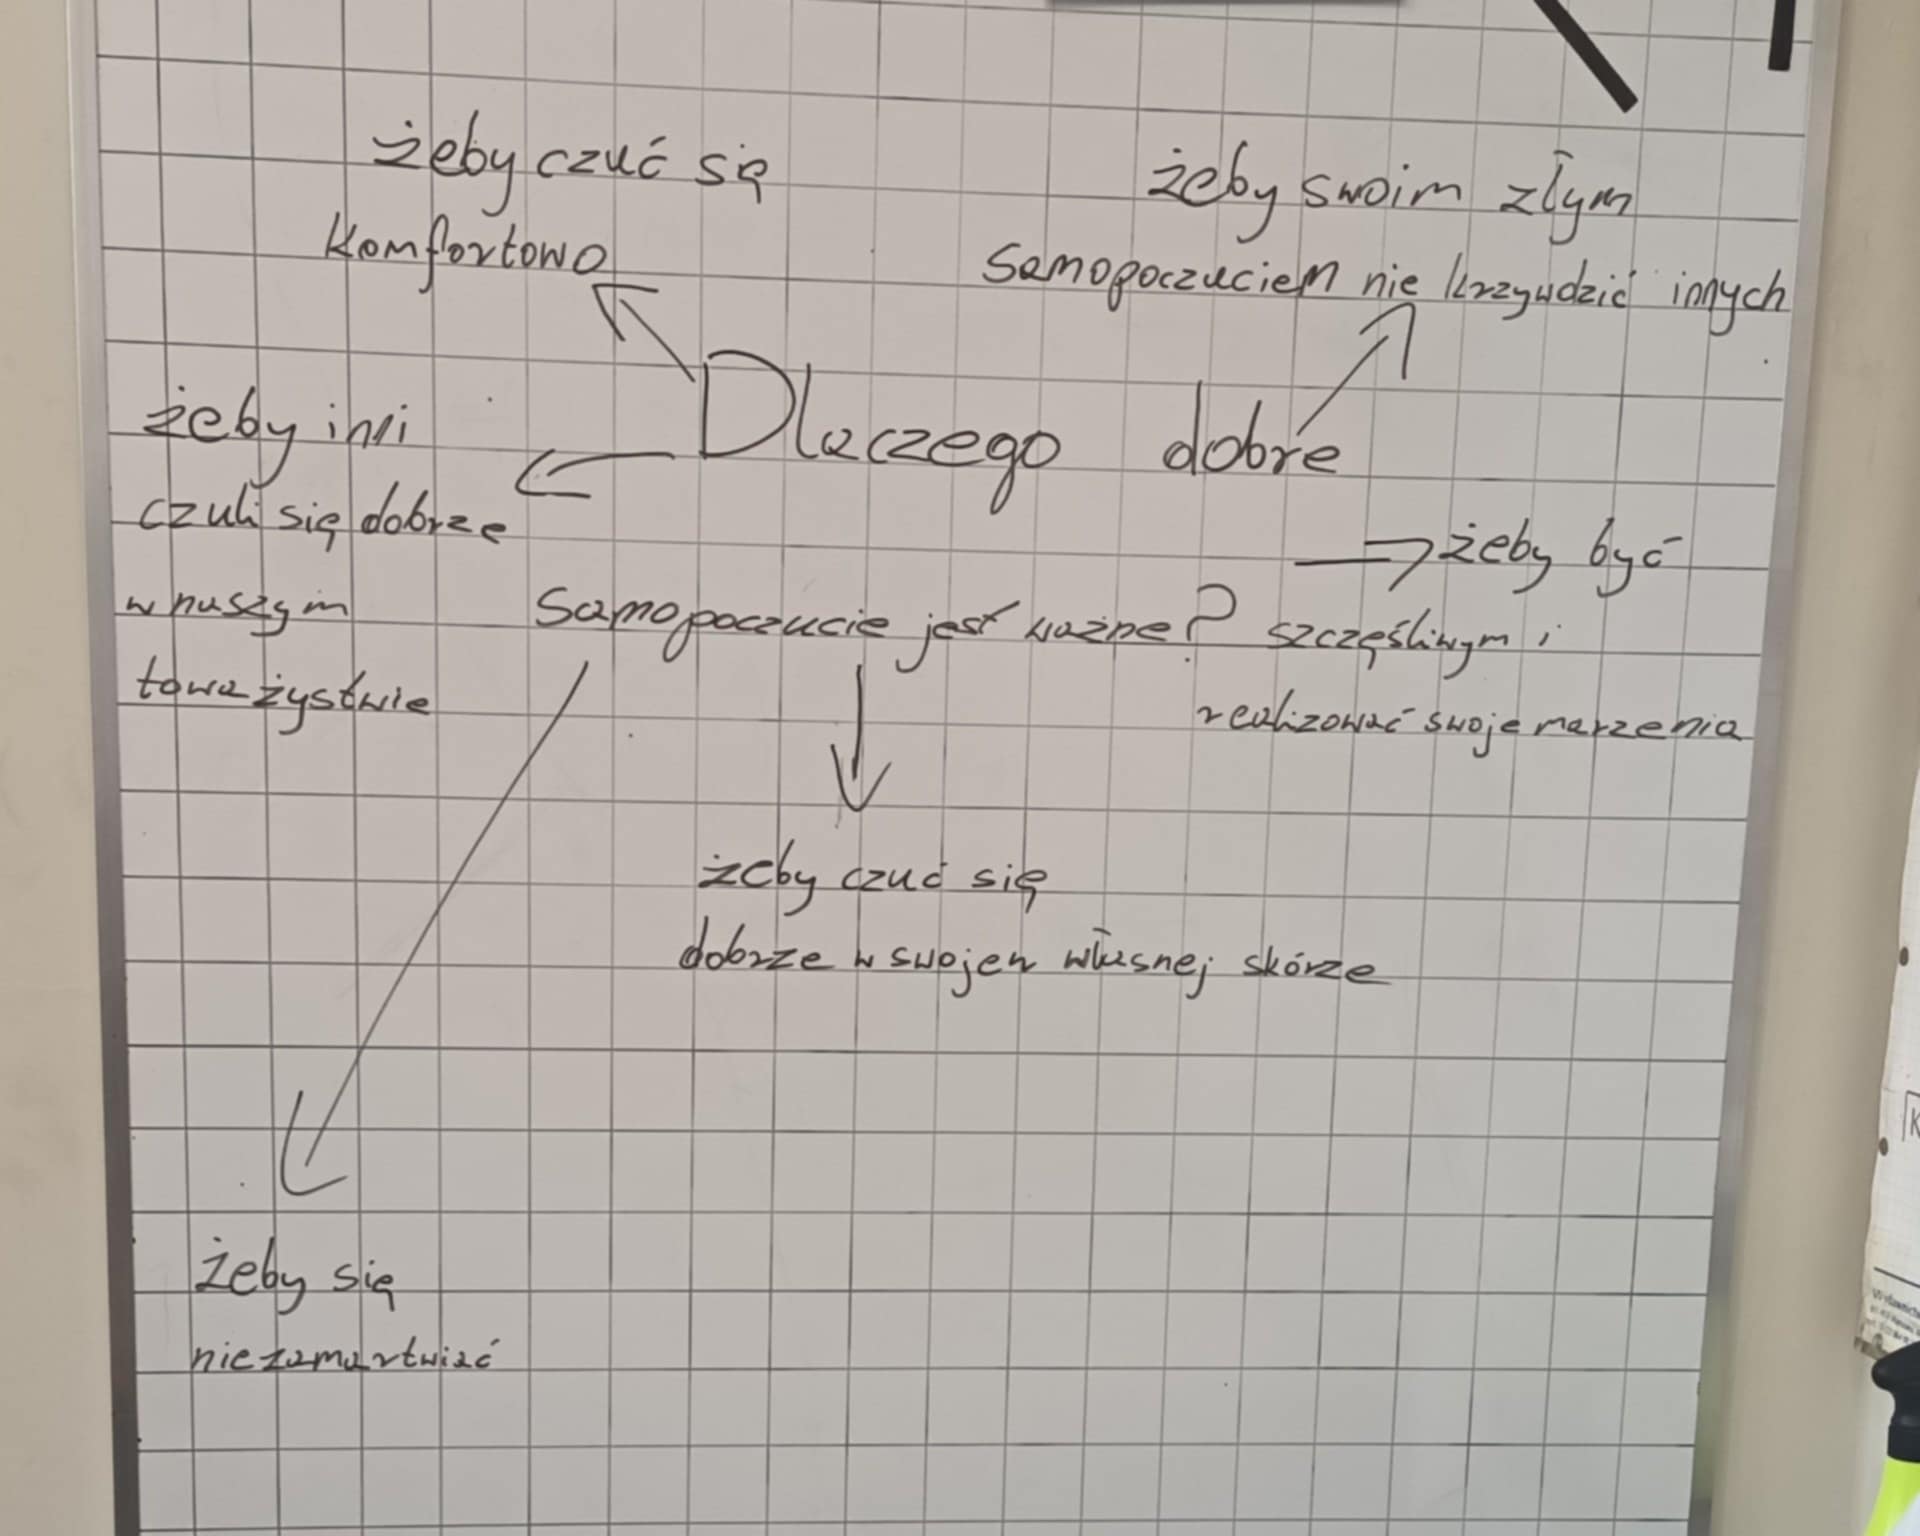 żeby czuć się
komfortowo
żeby swoim złym
samopoczuciem nie krzywdzić innych
Dlaczego dobre
samopoczucie jest ważne?
żeby inni
czuli się dobrze
w naszym
toważystwie
żeby być
szczęśliwym i
realizować swoje marzenia
żeby czuć się
dobrze w swojej własnej skórze
żeby się
nie zamartwiać